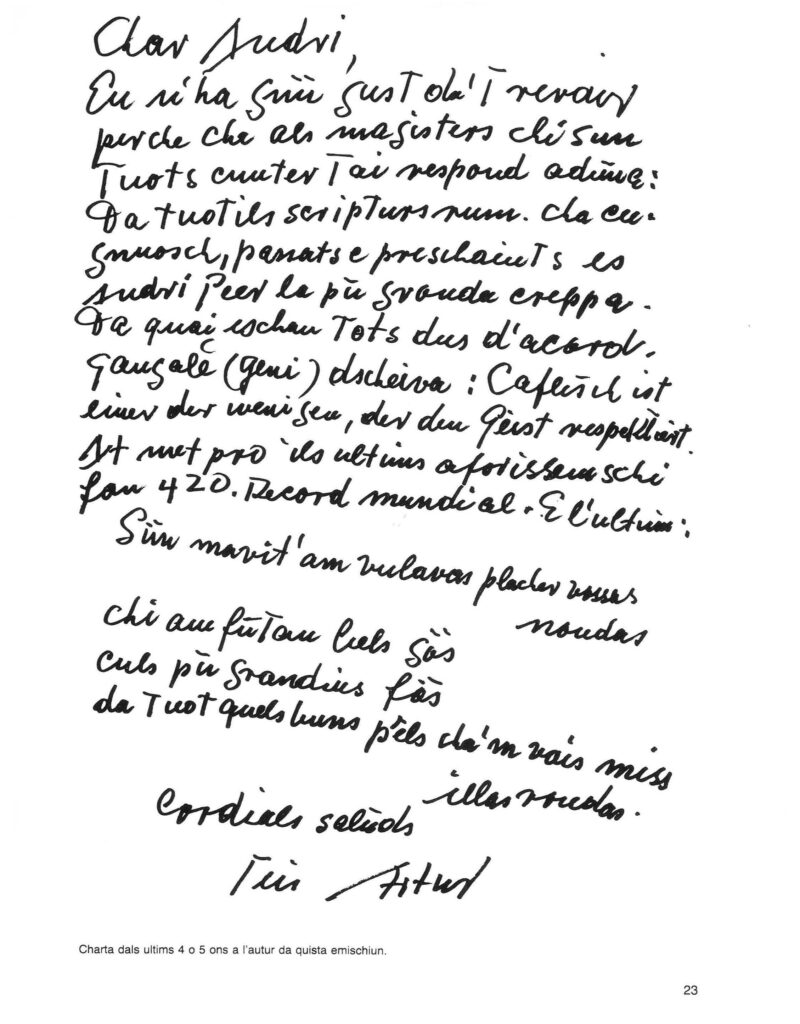 Char Andri,
Eu n'ha gnü gust da't revair
perche cha als magisters chi sun
Tuots cunter Tai respond adüna:
Da tuot ils scripturs rum. cha cu-
gnuosch, passats e preschaints es
Andri Peer la pü gronda creppa.
Da quai eschan Tots dus d'acord.
(geni) dscheiva: Caflisch ist
einer der wenigen, der den Geist respektiert.
At met pro ils ultims aforissem schi
fan 420. Record mundial. E l'ultim:
Sün mavit'am vulavas placher vossas
noudas
chi am fütan bels gös
culs pü grandius fös
da Tuot quels buns pêls cha'm vais miss
illas roudas.
Cordials salüds
Teis Artur
Charta dals ultims 4 o 5 ons a l'autur da quista emischiun.
23